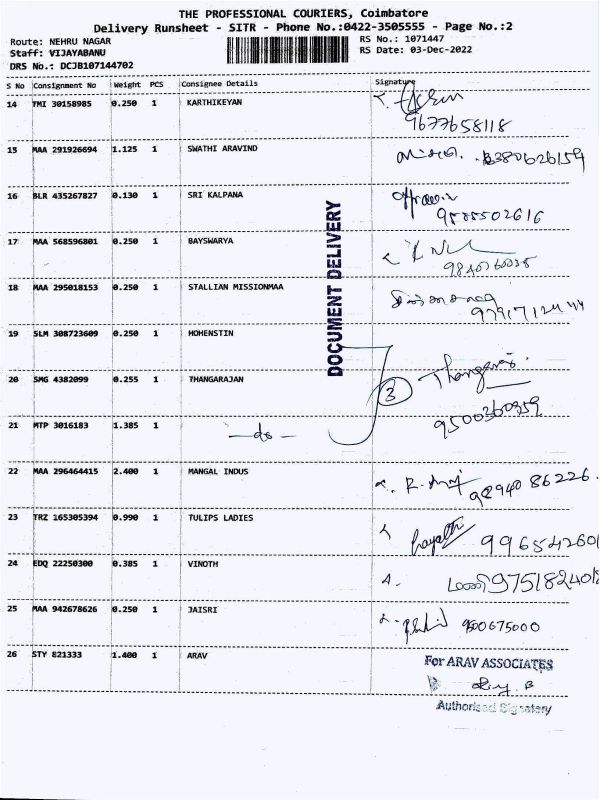 THE PROFESSIONAL COURIERS, Coimbatore
Delivery Runsheet - SITR - Phone No.:0422-3505555 - Page No.:2
Route: NEHRU NAGAR RS No.: 1071447
Staff: VIJAYABANU RS Date: 03-Dec-2022
DRS No.: DCJB107144702
S No Consignment No Weight PCS Consignee Details Signature
14 TMI 30158985 0.250 1 KARTHIKEYAN
9677658118
15 MAA 291926694 1.125 1 SWATHI ARAVIND 6380626159
16 BLR 435267827 0.130 1 SRI KALPANA
9585502616
17 MAA 568596801 0.250 1 BAYSWARYA
18 MAA 295018153 0.250 1 STALLIAN MISSIONMAA
DOCUMENT DELIVERY
19 SLM 308723609 0.250 1 HOHENSTIN
20 SMG 4382099 0.255 1 THANGARAJAN 3 Thangaraj
9500360359
21 MTP 3016183 1.385 1 -do-
22 MAA 296464415 2.400 1 MANGAL INDUS 9894086226.
23 TRZ 165305394 0.990 1 TULIPS LADIES
24 EDQ 22250300 0.385 1 VINOTH
25 MAA 942678626 0.250 1 JAISRI 9500675000
26 STY 821333 1.400 1 ARAV For ARAV ASSOCIATES
Authorised Signatory